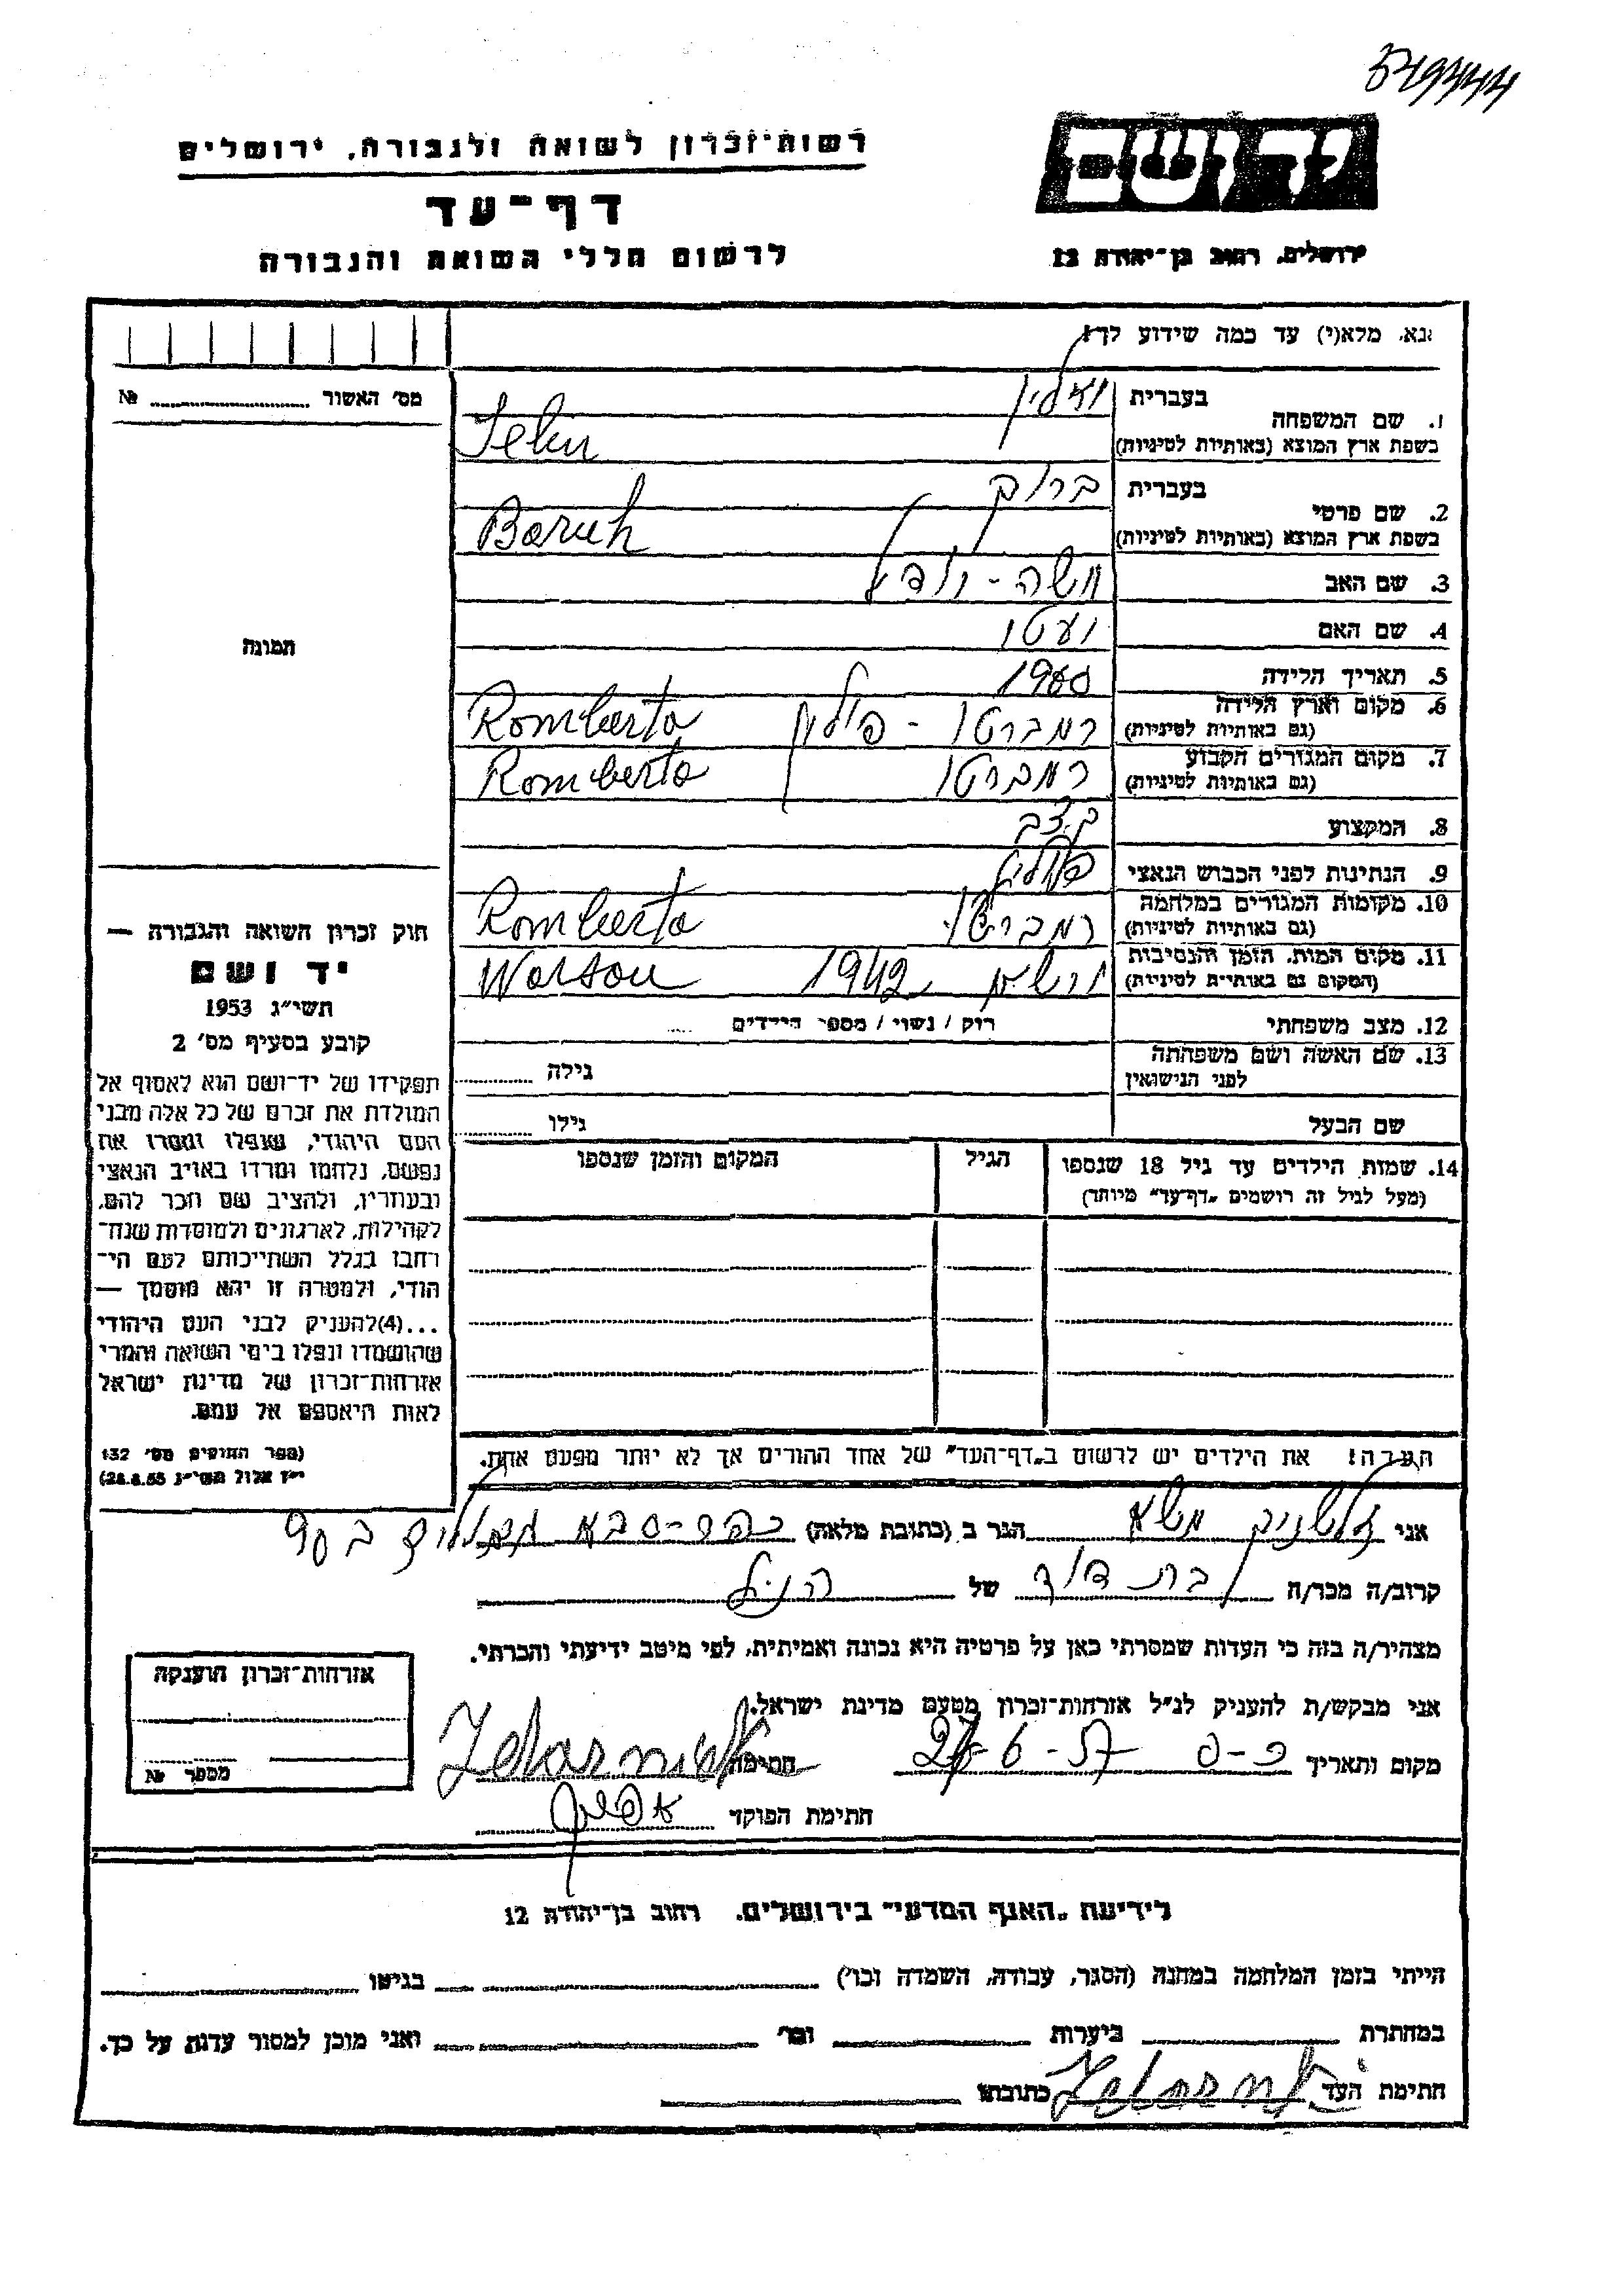 רשות־זכרון לשואה ולגבורה, ירושלים
דף־עד
לרשום חללי השואה והגבורה
יד ושם
ירושלים, רחוב בן־יהודה 12
נא, מלא(י) עד כמה שידוע לך!
מס׳ האשור № 
1. שם המשפחה
בעברית
בשפת ארץ המוצא (באותיות לטיניות)
2. שם פרטי
בעברית ברוך
בשפת ארץ המוצא (באותיות לטיניות) Baruh
3. שם האב משה-
4. שם האם
5. תאריך הלידה
6. מקום וארץ הלידה רמברטו - פולין Romberto
(גם באותיות לטיניות)
7. מקום המגורים הקבוע רמברטו Romberto
(גם באותיות לטיניות)
8. המקצוע
9. הנתינות לפני הכבוש הנאצי
10. מקומות המגורים במלחמה רמברטו Romberto
(גם באותיות לטיניות)
11. מקום המות, הזמן והנסיבות 1942 Warsou
(המקום גם באותיות לטיניות)
12. מצב משפחתי רוק / נשוי / מספר הילדים
13. שם האשה ושם משפחתה
לפני הנישואין
גילה
שם הבעל גילו
14. שמות הילדים עד גיל 18 שנספו
(מעל לגיל זה רושמים „דף־עד״ מיוחד)
הגיל
המקום והזמן שנספו
הערה! את הילדים יש לרשום ב„דף־העד״ של אחד ההורים אך לא יותר מפעם אחת.
תמונה
חוק זכרון השואה והגבורה —
יד ושם
תשי״ג 1953
קובע בסעיף מס׳ 2
תפקידו של יד־ושם הוא לאסוף אל
המולדת את זכרם של כל אלה מבני
העם היהודי, שנפלו ומסרו את
נפשם, נלחמו ומרדו באויב הנאצי
ובעוזריו, ולהציב שם וזכר להם,
לקהילות, לארגונים ולמוסדות שנח־
רחבו בגלל השתייכותם לעם הי־
הודי, ולמטרה זו יהא מוסמך —
...(4)להעניק לבני העם היהודי
שהושמדו ונפלו בימי השואה והמרי
אזרחות־זכרון של מדינת ישראל
לאות היאספם אל עמם.
(ספר החוקים מס׳ 132
י״ז אלול תשי״ג 28.8.53)
אני הגר ב (כתובת מלאה) כפר-סבא
קרוב/ה מכר/ה בת דוד של הנ״ל
מצהיר/ה בזה כי העדות שמסרתי כאן על פרטיה היא נכונה ואמיתית, לפי מיטב ידיעתי והכרתי.
אני מבקש/ת להעניק לנ״ל אזרחות־זכרון מטעם מדינת ישראל.
מקום ותאריך כ-ס חתימה
חתימת הפוקד
אזרחות־זכרון הוענקה
מספר №
לידיעת „האגף המדעי״ בירושלים, רחוב בן־יהודה 12
הייתי בזמן המלחמה במחנה (הסגר, עבודה, השמדה וכו׳) בגיטו
במחתרת ביערות וכו׳ ואני מוכן למסור עדות על כך.
חתימת העד כתובתו